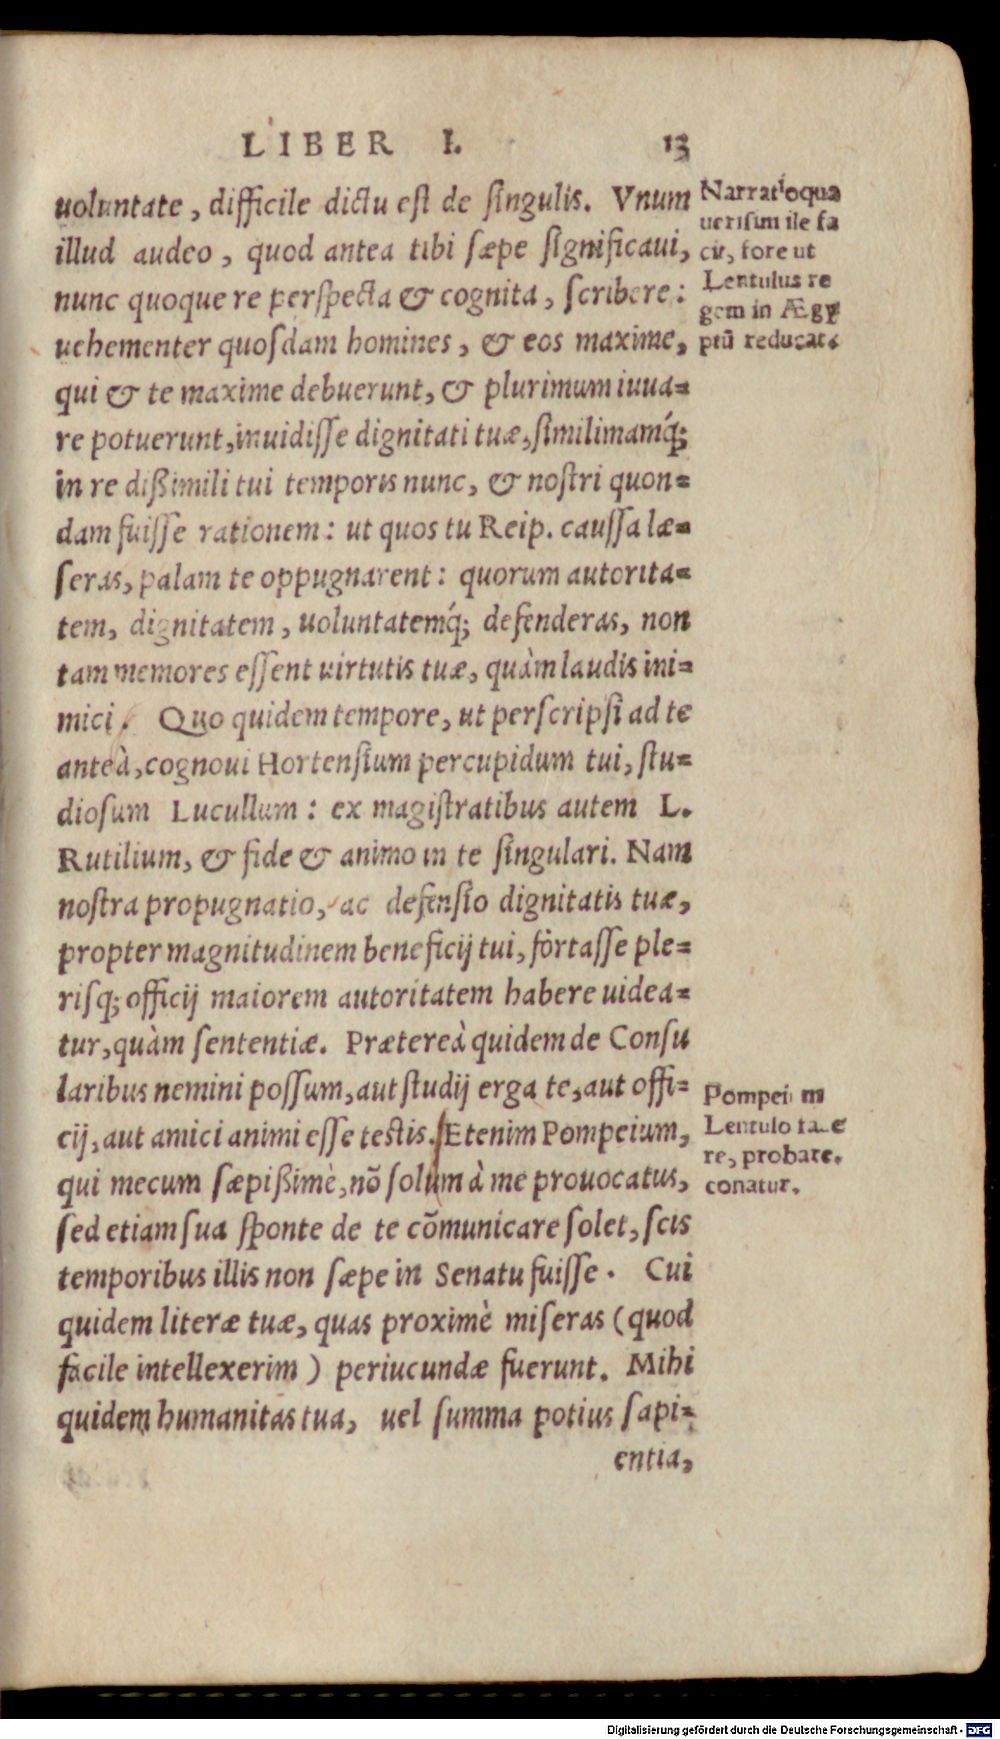 LIBER I. 13
uoluntate, difficile dictu est de singulis. Vnum
illud audeo, quod antea tibi sæpe significaui,
nunc quoque re perspecta & cognita, scribere:
uehementer quosdam homines, & eos maxime,
qui & te maxime debuerunt, & plurimum iuua=
re potuerunt, inuidisse dignitati tuæ, similimamq́;
in re dißimili tui temporis nunc, & nostri quon=
dam fuisse rationem: ut quos tu Reip. caussa læ=
seras, palam te oppugnarent: quorum autorita=
tem, dignitatem, uoluntatemq́; defenderas, non
tam memores essent uirtutis tuæ, quàm laudis ini=
mici. Quo quidem tempore, ut perscripsi ad te
anteà, cognoui Hortensium percupidum tui, stu=
diosum Lucullum: ex magistratibus autem L.
Rutilium, & fide & animo in te singulari. Nam
nostra propugnatio, ac defensio dignitatis tuæ,
propter magnitudinem beneficij tui, fortasse ple=
risq; officij maiorem autoritatem habere uidea=
tur, quàm sententiæ. Prætereà quidem de Consu
laribus nemini possum, aut studij erga te, aut offi=
cij, aut amici animi esse testis. Etenim Pompeium,
qui mecum sæpißimè, nõ solum à me prouocatus,
sed etiam sua sponte de te cõmunicare solet, scis
temporibus illis non sæpe in Senatu fuisse. Cui
quidem literæ tuæ, quas proximè miseras (quod
facile intellexerim) periucundæ fuerunt. Mihi
quidem humanitas tua, uel summa potius sapi=
entia,
Narratio qua
uerisimile fa
cit, fore ut
Lentulus re
gem in Ægy
ptũ reducat.
Pompeium
Lentulo faue
re, probare
conatur.
Digitalisierung gefördert durch die Deutsche Forschungsgemeinschaft - DFG